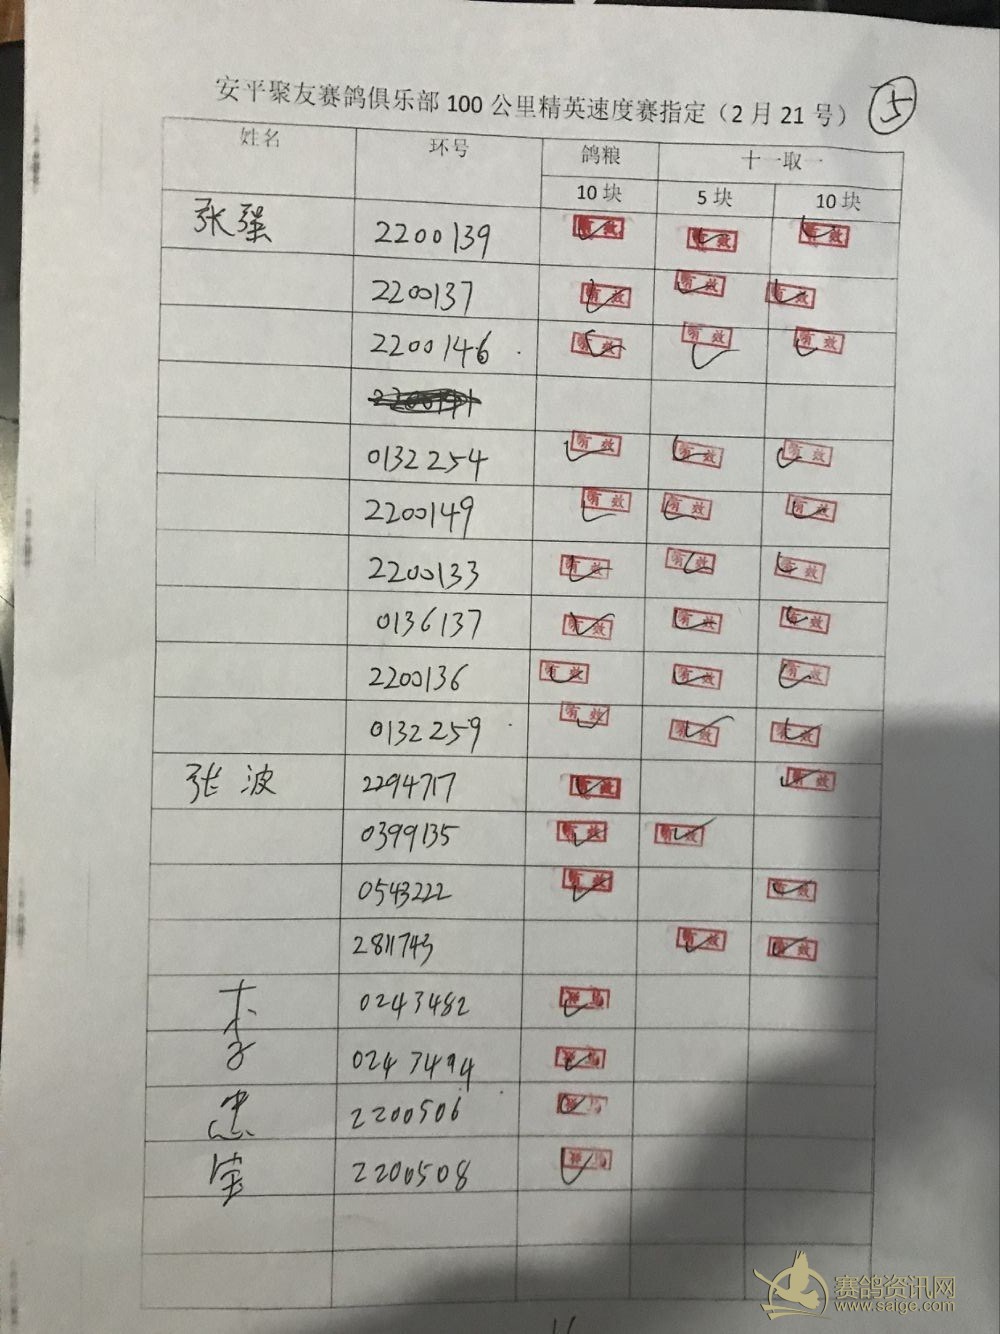 安平聚友赛鸽俱乐部100公里精英速度赛指定（2月21号） 5
姓名 环号 鸽粮 十一取一
10块 5块 10块
张强 2200139 有效 有效 有效
2200137 有效 有效 有效
2200146 有效 有效 有效
0132254 有效 有效 有效
2200149 有效 有效 有效
2200133 有效 有效 有效
0136137 有效 有效 有效
2200136 有效 有效 有效
0132259 有效 有效 有效
张波 2294717 有效 有效
0399135 有效 有效
0543222 有效 有效
2811743 有效 有效
李 0243482
0243494
忠 2200506
宝 2200508
赛鸽资讯网
www.saige.com